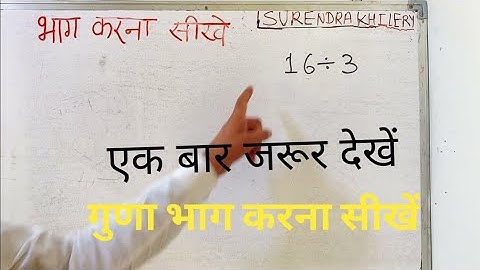 भाग करना सीखे
SURENDRA KHILERY
16÷3
एक बार जरूर देखें
गुणा भाग करना सीखें